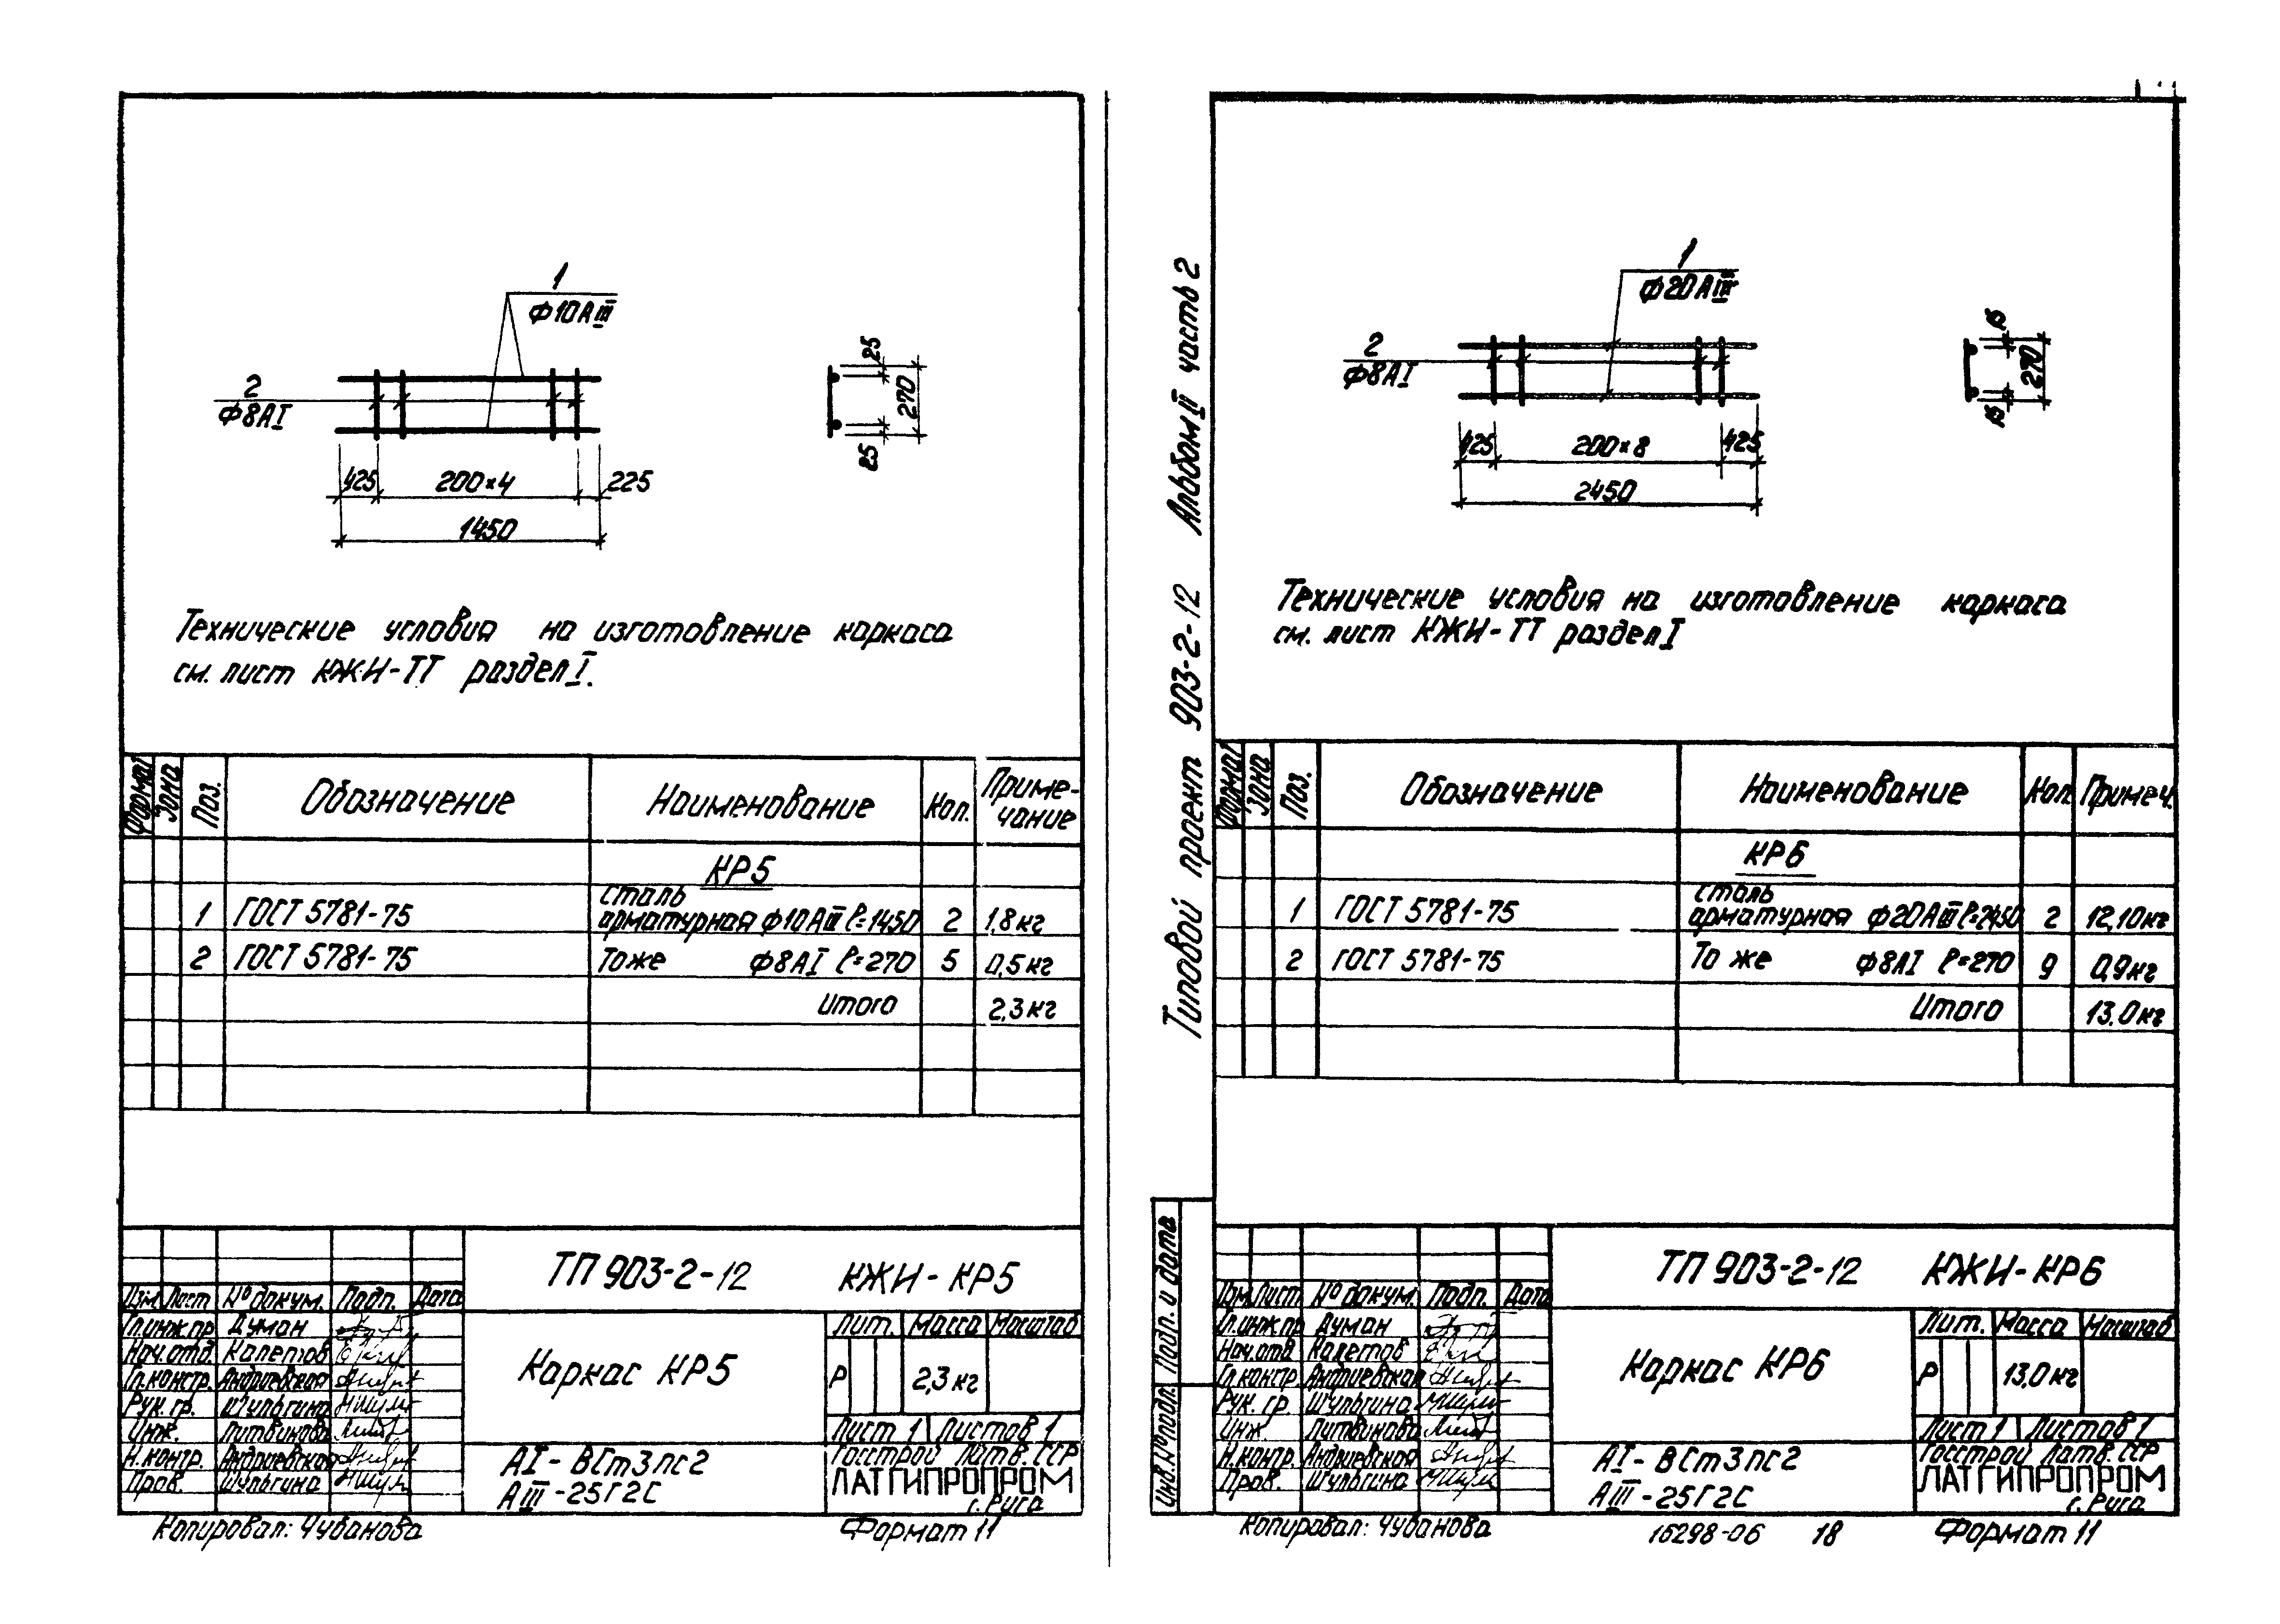 1
ф10АIII
2
ф8АI
25
270
25
425
200×4
225
1450
Технические условия на изготовление каркаса
см. лист КЖИ-ТТ раздел I.
Формат
Зона
Поз.
Обозначение
Наименование
Кол.
Приме-
чание
КР5
1 ГОСТ 5781-75 сталь
арматурная ф10АIII ℓ=1450 2 1,8кг
2 ГОСТ 5781-75 То же ф8АI ℓ=270 5 0,5кг
Итого 2,3кг
ТП 903-2-12 КЖИ-КР5
Изм. Лист № докум. Подп. Дата
Гл.инж.пр Думан
Нач.отд. Калетов
Гл.констр. Андриевская
Рук. гр. Шульгина
Инж. Литвинова
Н.контр. Андриевская
Пров. Шульгина
Каркас КР5
Лит. Масса Масштаб
Р 2,3кг
Лист 1 Листов 1
АI - ВСт3пс2
АIII - 25Г2С
Госстрой Латв. ССР
ЛАТГИПРОПРОМ
г. Рига
Копировал: Чубанова
Формат 11
Типовой проект 903-2-12 Альбом II часть 2
1
ф20АIII
2
ф8АI
15
270
15
425
200×8
425
2450
Технические условия на изготовление каркаса
см. лист КЖИ-ТТ раздел I
Формат
Зона
Поз.
Обозначение
Наименование
Кол.
Примеч.
КР6
1 ГОСТ 5781-75 сталь
арматурная ф20АIII ℓ=2450 2 12,10кг
2 ГОСТ 5781-75 То же ф8АI ℓ=270 9 0,9кг
Итого 13,0кг
Подп. и дата
Инв.№подл.
ТП 903-2-12 КЖИ-КР6
Изм. Лист № докум. Подп. Дата
Гл.инж.пр Думан
Нач.отд Калетов
Гл.констр. Андриевская
Рук. гр. Шульгина
Инж. Литвинова
Н.контр. Андриевская
Пров. Шульгина
Каркас КР6
Лит. Масса Масштаб
Р 13,0кг
Лист 1 Листов 1
АI - ВСт3пс2
АIII - 25Г2С
Госстрой Латв. ССР
ЛАТГИПРОПРОМ
г. Рига
Копировал: Чубанова
16298-06 18
Формат 11